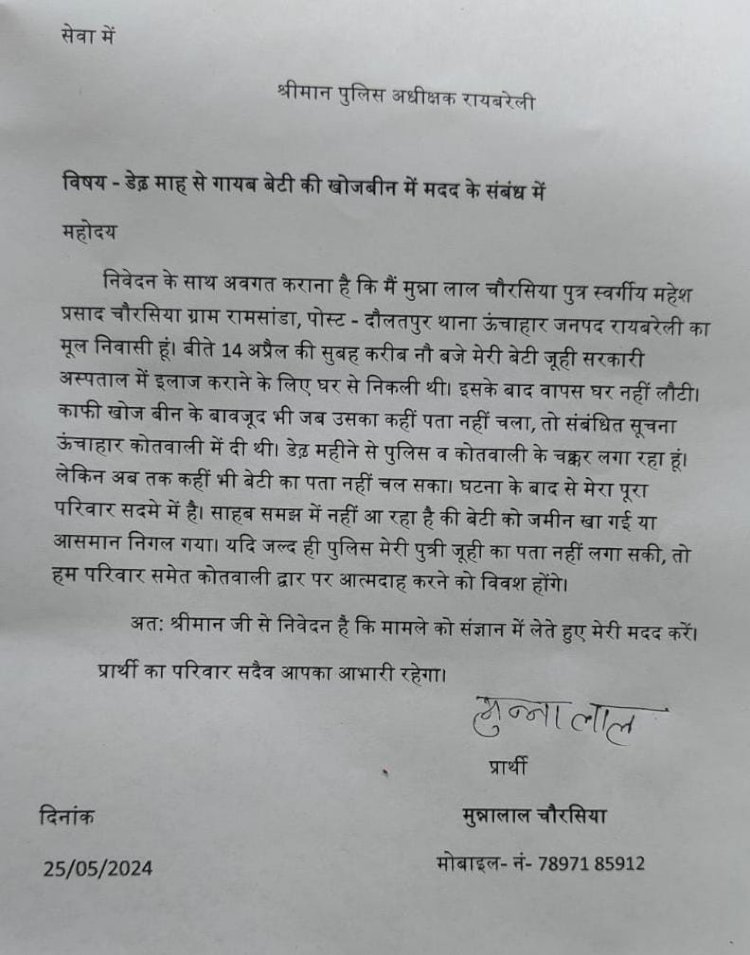 सेवा में
श्रीमान पुलिस अधीक्षक रायबरेली
विषय - डेढ़ माह से गायब बेटी की खोजबीन में मदद के संबंध में
महोदय
निवेदन के साथ अवगत कराना है कि मैं मुन्ना लाल चौरसिया पुत्र स्वर्गीय महेश
प्रसाद चौरसिया ग्राम रामसांडा, पोस्ट - दौलतपुर थाना ऊंचाहार जनपद रायबरेली का
मूल निवासी हूं। बीते 14 अप्रैल की सुबह करीब नौ बजे मेरी बेटी जूही सरकारी
अस्पताल में इलाज कराने के लिए घर से निकली थी। इसके बाद वापस घर नहीं लौटी।
काफी खोज बीन के बावजूद भी जब उसका कहीं पता नहीं चला, तो संबंधित सूचना
ऊंचाहार कोतवाली में दी थी। डेढ़ महीने से पुलिस व कोतवाली के चक्कर लगा रहा हूं।
लेकिन अब तक कहीं भी बेटी का पता नहीं चल सका। घटना के बाद से मेरा पूरा
परिवार सदमे में है। साहब समझ में नहीं आ रहा है की बेटी को जमीन खा गई या
आसमान निगल गया। यदि जल्द ही पुलिस मेरी पुत्री जूही का पता नहीं लगा सकी, तो
हम परिवार समेत कोतवाली द्वार पर आत्मदाह करने को विवश होंगे।
अत: श्रीमान जी से निवेदन है कि मामले को संज्ञान में लेते हुए मेरी मदद करें।
प्रार्थी का परिवार सदैव आपका आभारी रहेगा।
मुन्ना लाल
प्रार्थी
दिनांक
मुन्नालाल चौरसिया
25/05/2024
मोबाइल- नं- 78971 85912